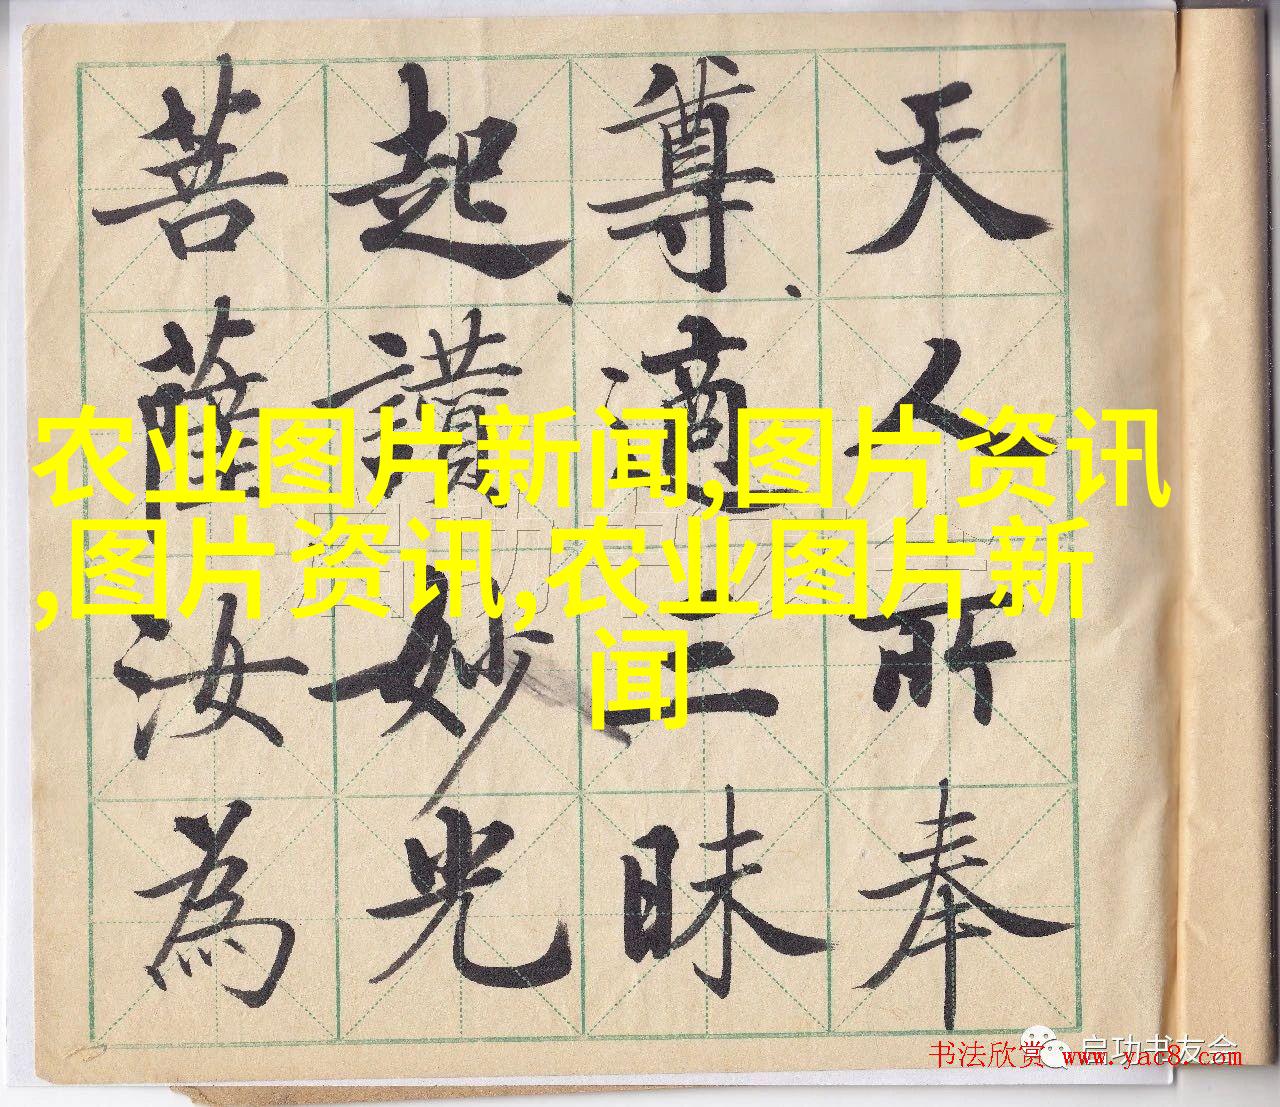 天人所奉
尊適三昧
起讚妙光
菩薩汝為
农业图片新闻,图片资讯
,图片资讯,农业图片新
闻
启功书友会
书法欣赏 www.yac8.com
启功书友会